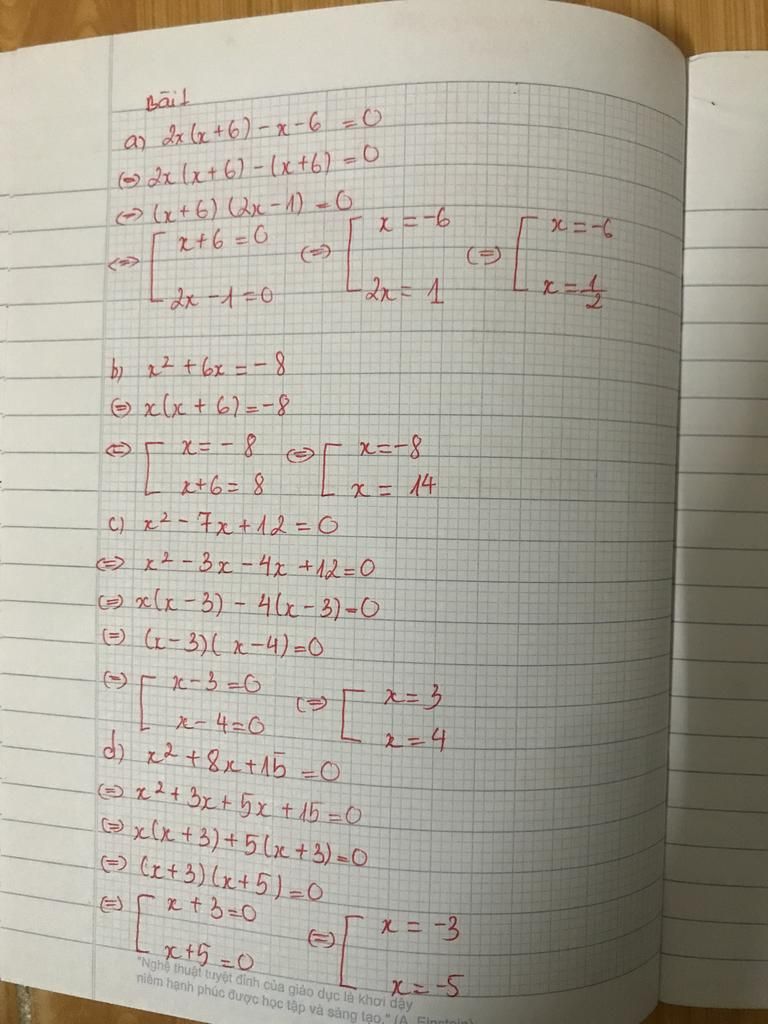 Bài 1
a) 2x(x+6) - x - 6 = 0
⇔ 2x(x+6) - (x+6) = 0
⇔ (x+6)(2x-1) = 0
⇔ [ x+6 = 0 ⇔ [ x = -6 ⇔ [ x = -6
2x-1 = 0 2x = 1 x = 1/2
b) x² + 6x = -8
⇔ x(x+6) = -8
⇔ [ x = -8 ⇔ [ x = -8
x+6 = 8 x = 14
c) x² - 7x + 12 = 0
⇔ x² - 3x - 4x + 12 = 0
⇔ x(x-3) - 4(x-3) = 0
⇔ (x-3)(x-4) = 0
⇔ [ x-3 = 0 ⇔ [ x = 3
x-4 = 0 x = 4
d) x² + 8x + 15 = 0
⇔ x² + 3x + 5x + 15 = 0
⇔ x(x+3) + 5(x+3) = 0
⇔ (x+3)(x+5) = 0
⇔ [ x+3 = 0 ⇔ [ x = -3
x+5 = 0 x = -5
"Nghệ thuật tuyệt đỉnh của giáo dục là khơi dậy
niềm hạnh phúc được học tập và sáng tạo." (A. Einstein)